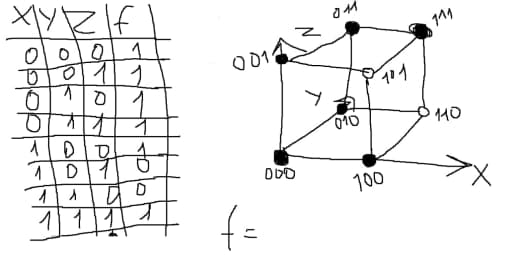 X Y Z f
0 0 0 1
0 0 1 1
0 1 0 1
0 1 1 1
1 0 0 1
1 0 1 0
1 1 0 0
1 1 1 1
011
111
Z
001
101
Y
010
110
000
100
X
f=